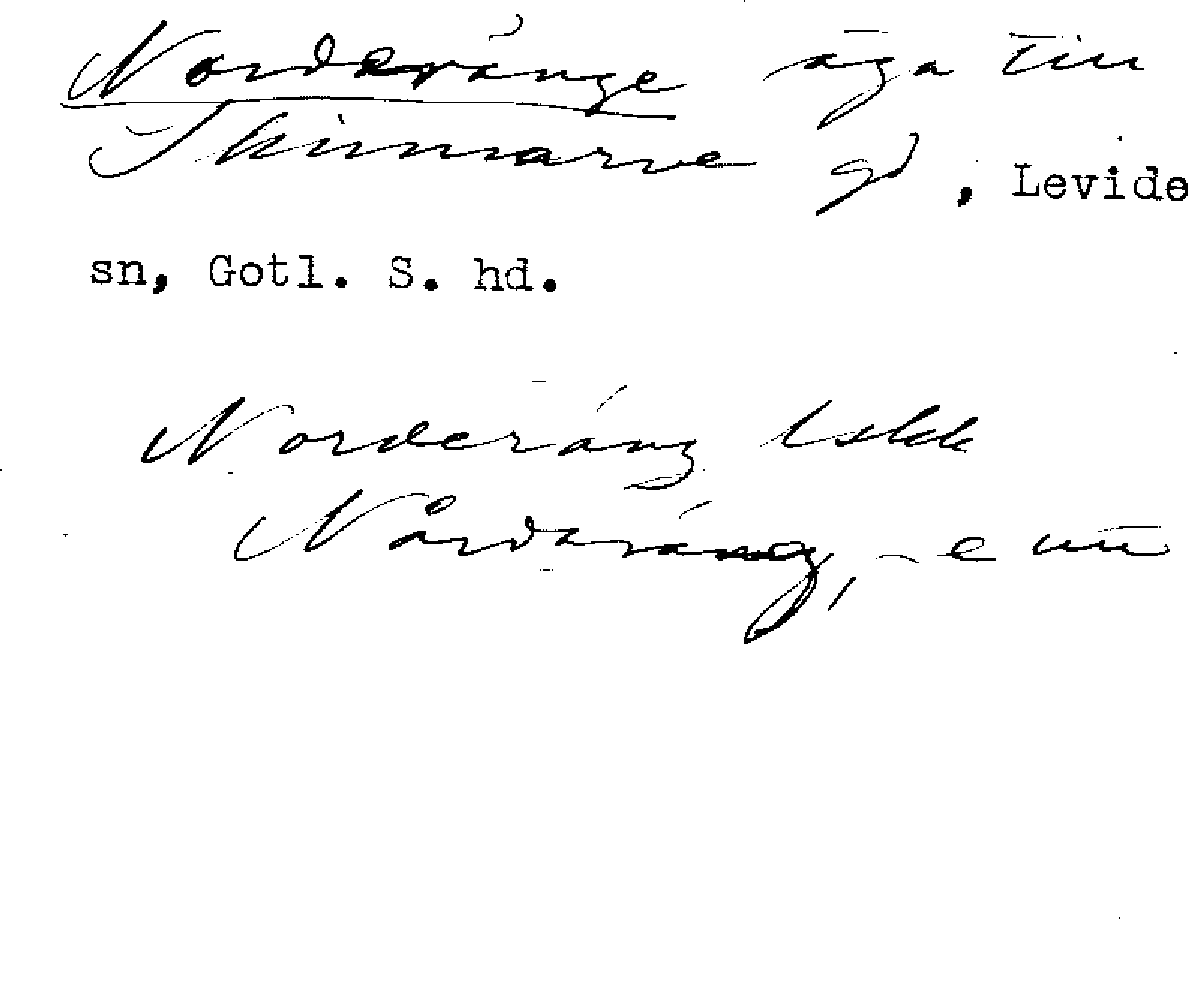 Norderänge äga till
Skinnarve gd, Levide
sn, Gotl. S. hd.
Norderäng lskk
Nårdaräng, -e un